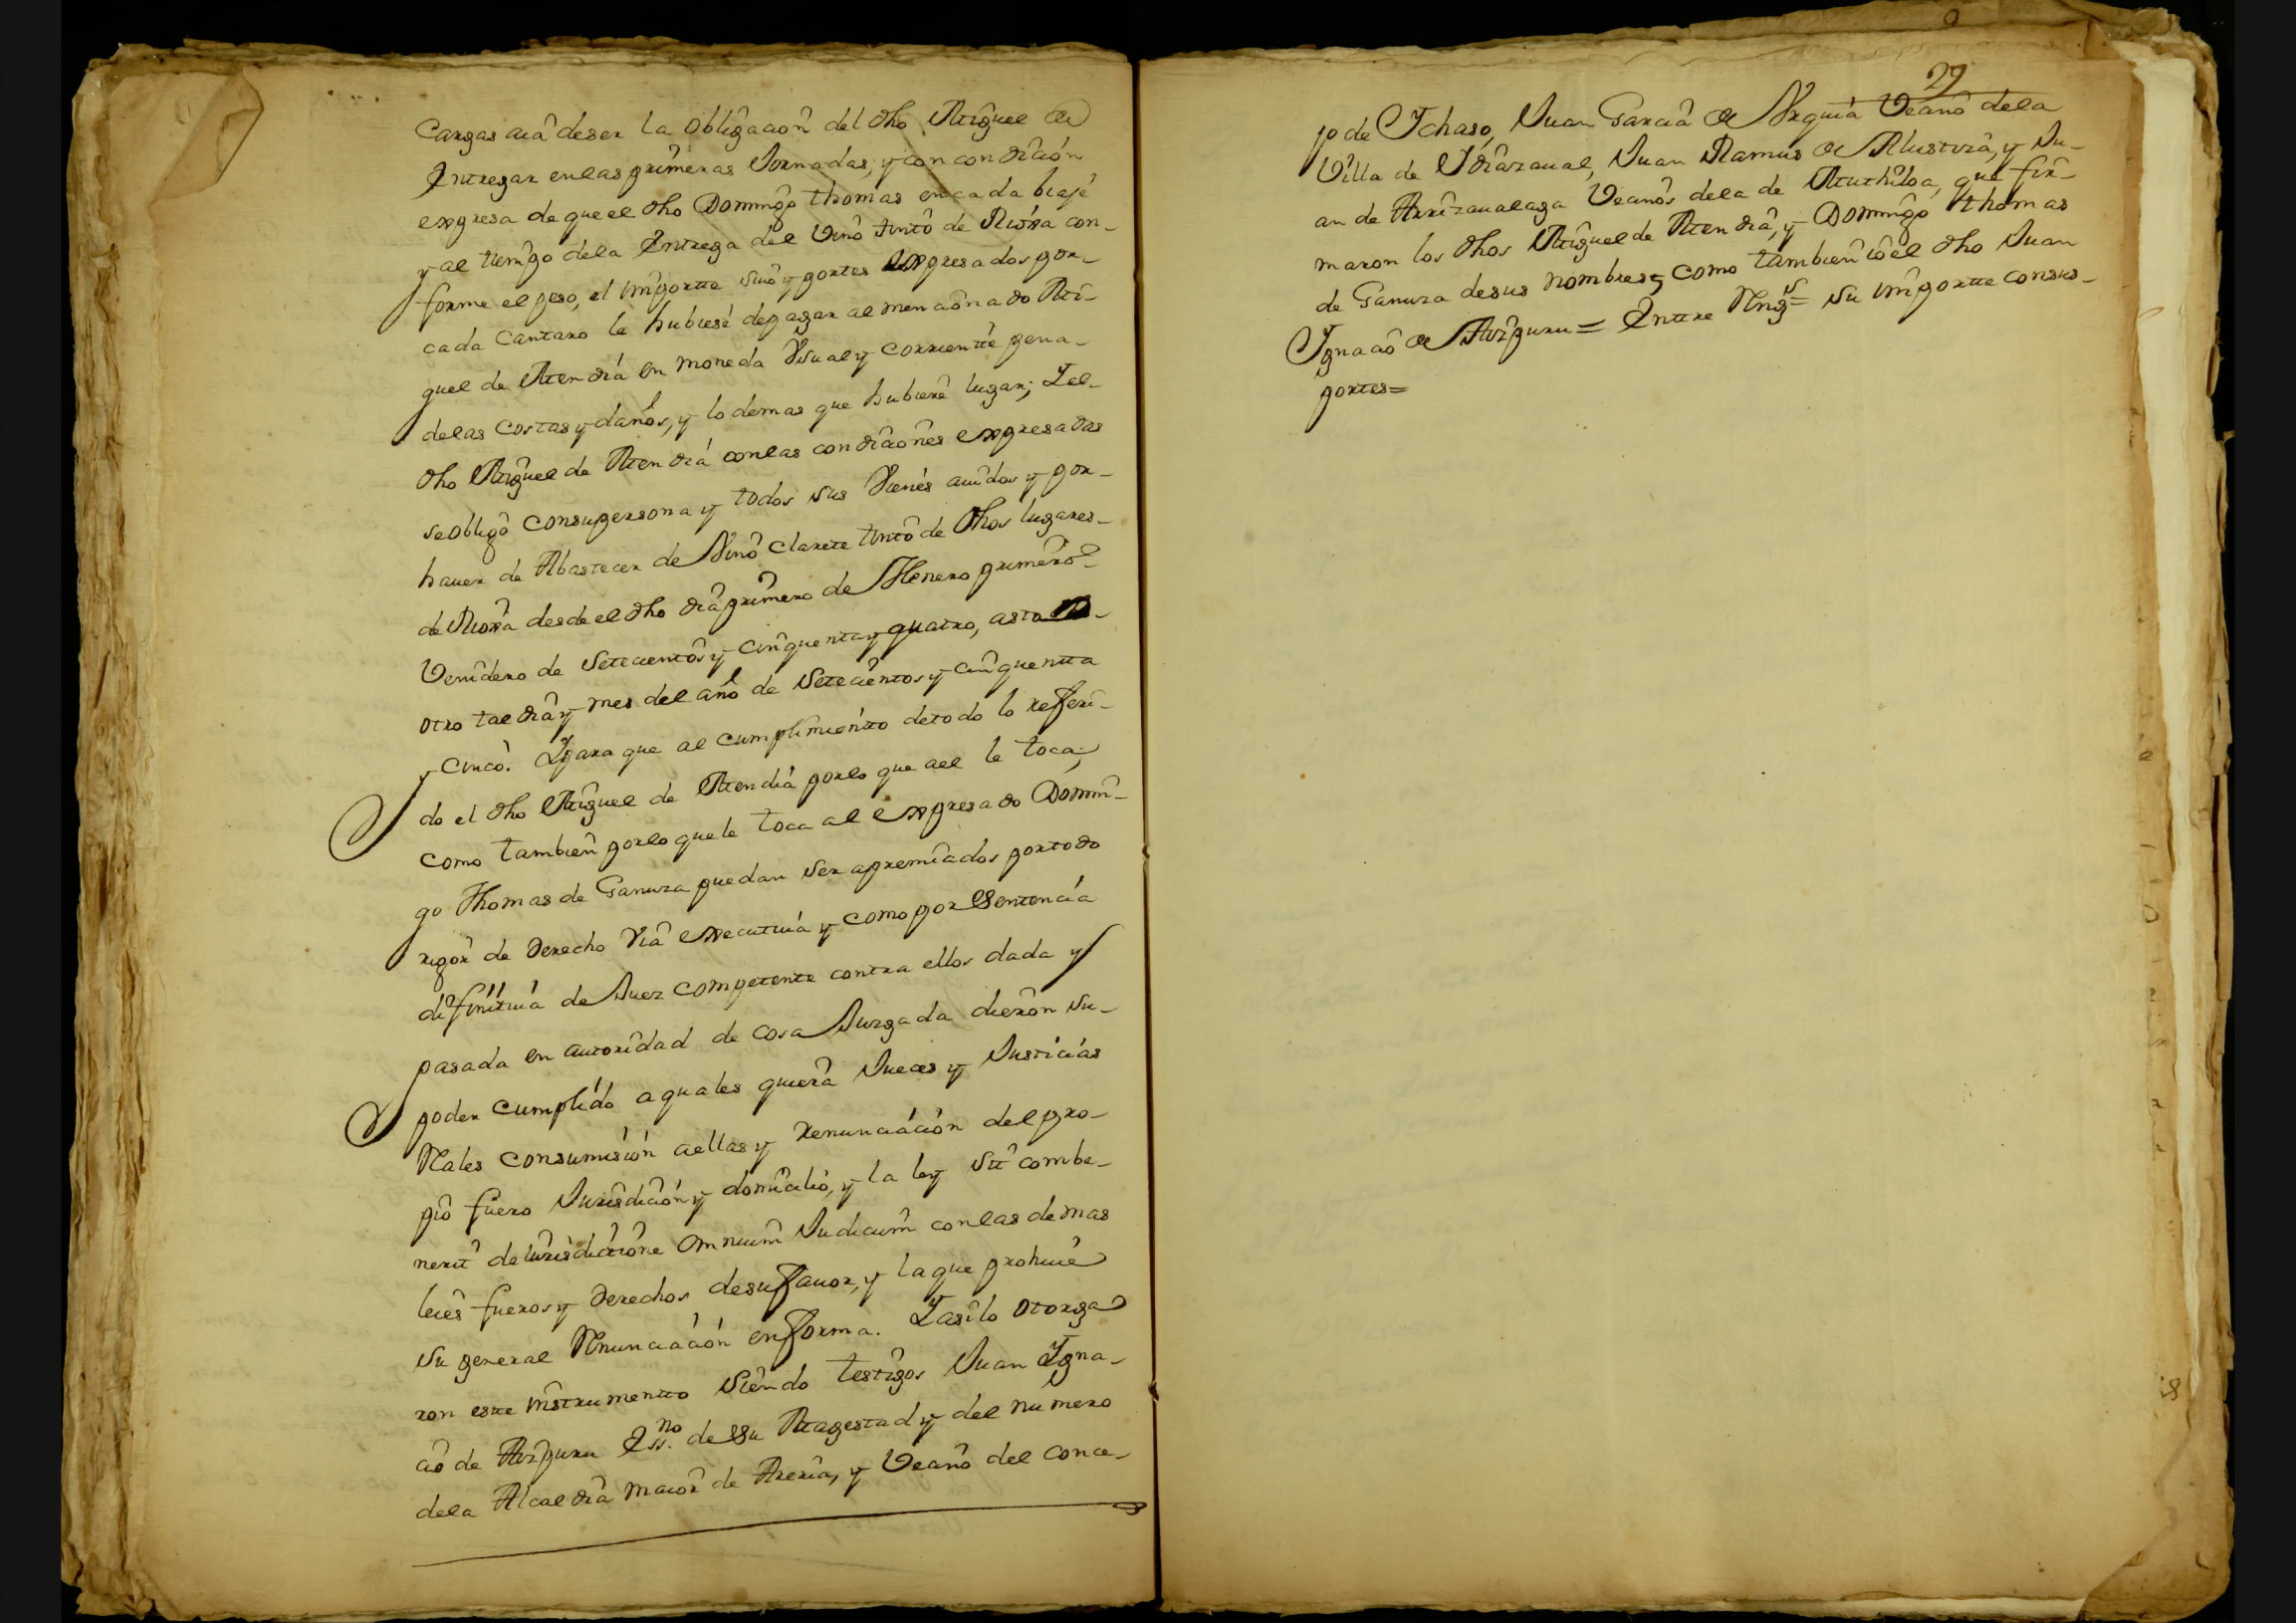 Cargas auia deser la obligacion del dho Miguel de
Entregar enlas primeras Jornadas, y con condicion
expresa de que el dho Domingo thomas en cada biaje
y al tiempo dela Entrega del Vino tinto de Rioxa con-
forme el peso, el importte suio y portes expresados por-
cada Cantaro le hubiese de pagar al mencionado Mi-
guel de Mendia en moneda Vsual y corriente pena-
delas costas y daños, y lo demas que hubiere lugar; Y el-
dho Miguel de Mendia conlas condiciones expresadas
se obligò consupersona y todos sus Vienes auidos y por-
hauer de Abastecer de Vino clarete tinto de dhos lugares-
de Rioxa desde el dho dia primero de Henero primero-
Venidero de Setecientos y cinquenta y quatro, asta
otro tal dia y mes del año de Setecientos y cinquentta
y cinco. Ypara que al cumplimientto detodo lo referi-
do el dho Miguel de Mendia porlo que ael le toca,
como tambien porlo quele toca al expresado Domin-
go Thomas de Ganuza puedan ser apremiados portodo
rigor de derecho via executiua y como por Sentencia
difinitiua de Juez competente contra ellos dada y
pasada en autoridad de cosa Juzgada dieron su-
poder cumplido a quales quiera Jueces y Justicias
Reales consumision aellas y renunciacion del pro-
pio fuero Jurisdicion y domicilio, y la ley Sit combe-
nerit de iurisdictione omnium Judicum conlas demas
leies fueros y derechos desu fauor, y laque prohiue
su general Renunciacion enforma. Yasilo otorga
ron estte instrumentto Siendo testigos Juan Igna-
cio de Aizpuru Essno. de su Magestad y del numero
dela Alcaldia maior de Areria, y Vecino del conce-
29
jo de Ichaso, Juan Garcia de Vrquia Vecino dela
Villa de Idiazaual, Juan Ramus de Alustiza, y Ju-
an de Arrizaualaga Vecinos dela de Mutiloa, que fir-
maron los dhos Miguel de Mendia, y Domingo thomas
de Ganuza desus nombres, como tambien io el dho Juan
Ignacio de Aizpuru = Enttre Rngs = Su importte consus-
portes =